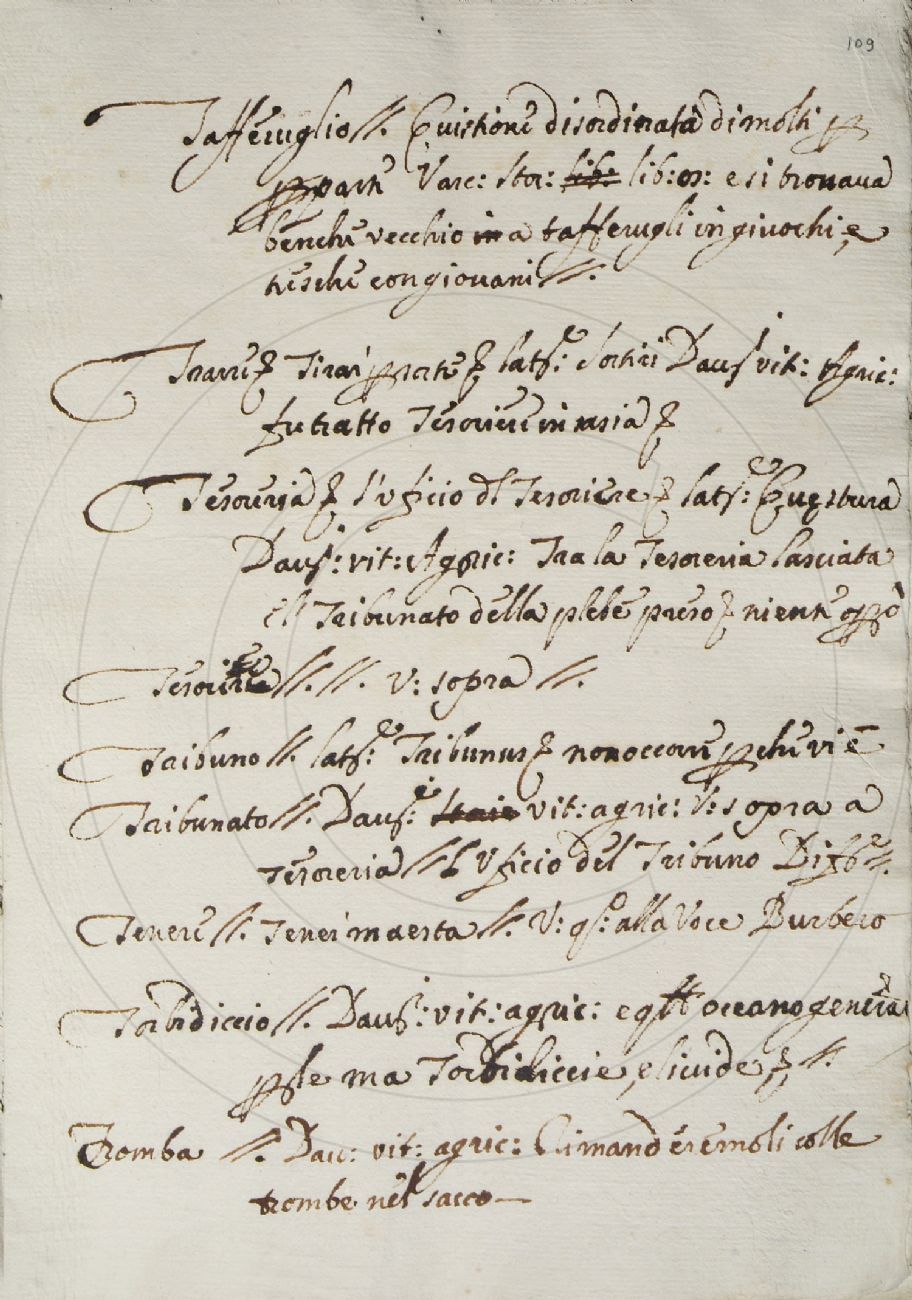 109
Tafferuglio //. Quistione disordinata di molti
Varc: Stor: lib: lib: e si trovava
benche vecchio in a tafferugli in giuochi, e
tresche con giovani //.
Trarre Tirar lat: Sortiri Dav: vit: Agric:
fu tratto Tesoriere in asia
Tesoreria l'uficio del Tesoriere lat: Questura
Dav: vit: Agric: Tra la Tesoreria lasciata
el Tribunato della plebe preso niente
Tesoriere //. //. V: sopra //.
Tribuno //. lat: Tribunus non occorre perche vi è
Tribunato //. Dav: vit: agric: V: sopra a
Tesoreria // l'Uficio del Tribuno
Tenere //. Tener in aesta //. V: alla Voce Burbero
Torbidiccio //. Dav: vit: agric: e oceano genera
perle ma Torbidiccie, e livide, //.
Tromba //. Dav: vit: agric: Rimanderemoli colle
trombe nel sacco —